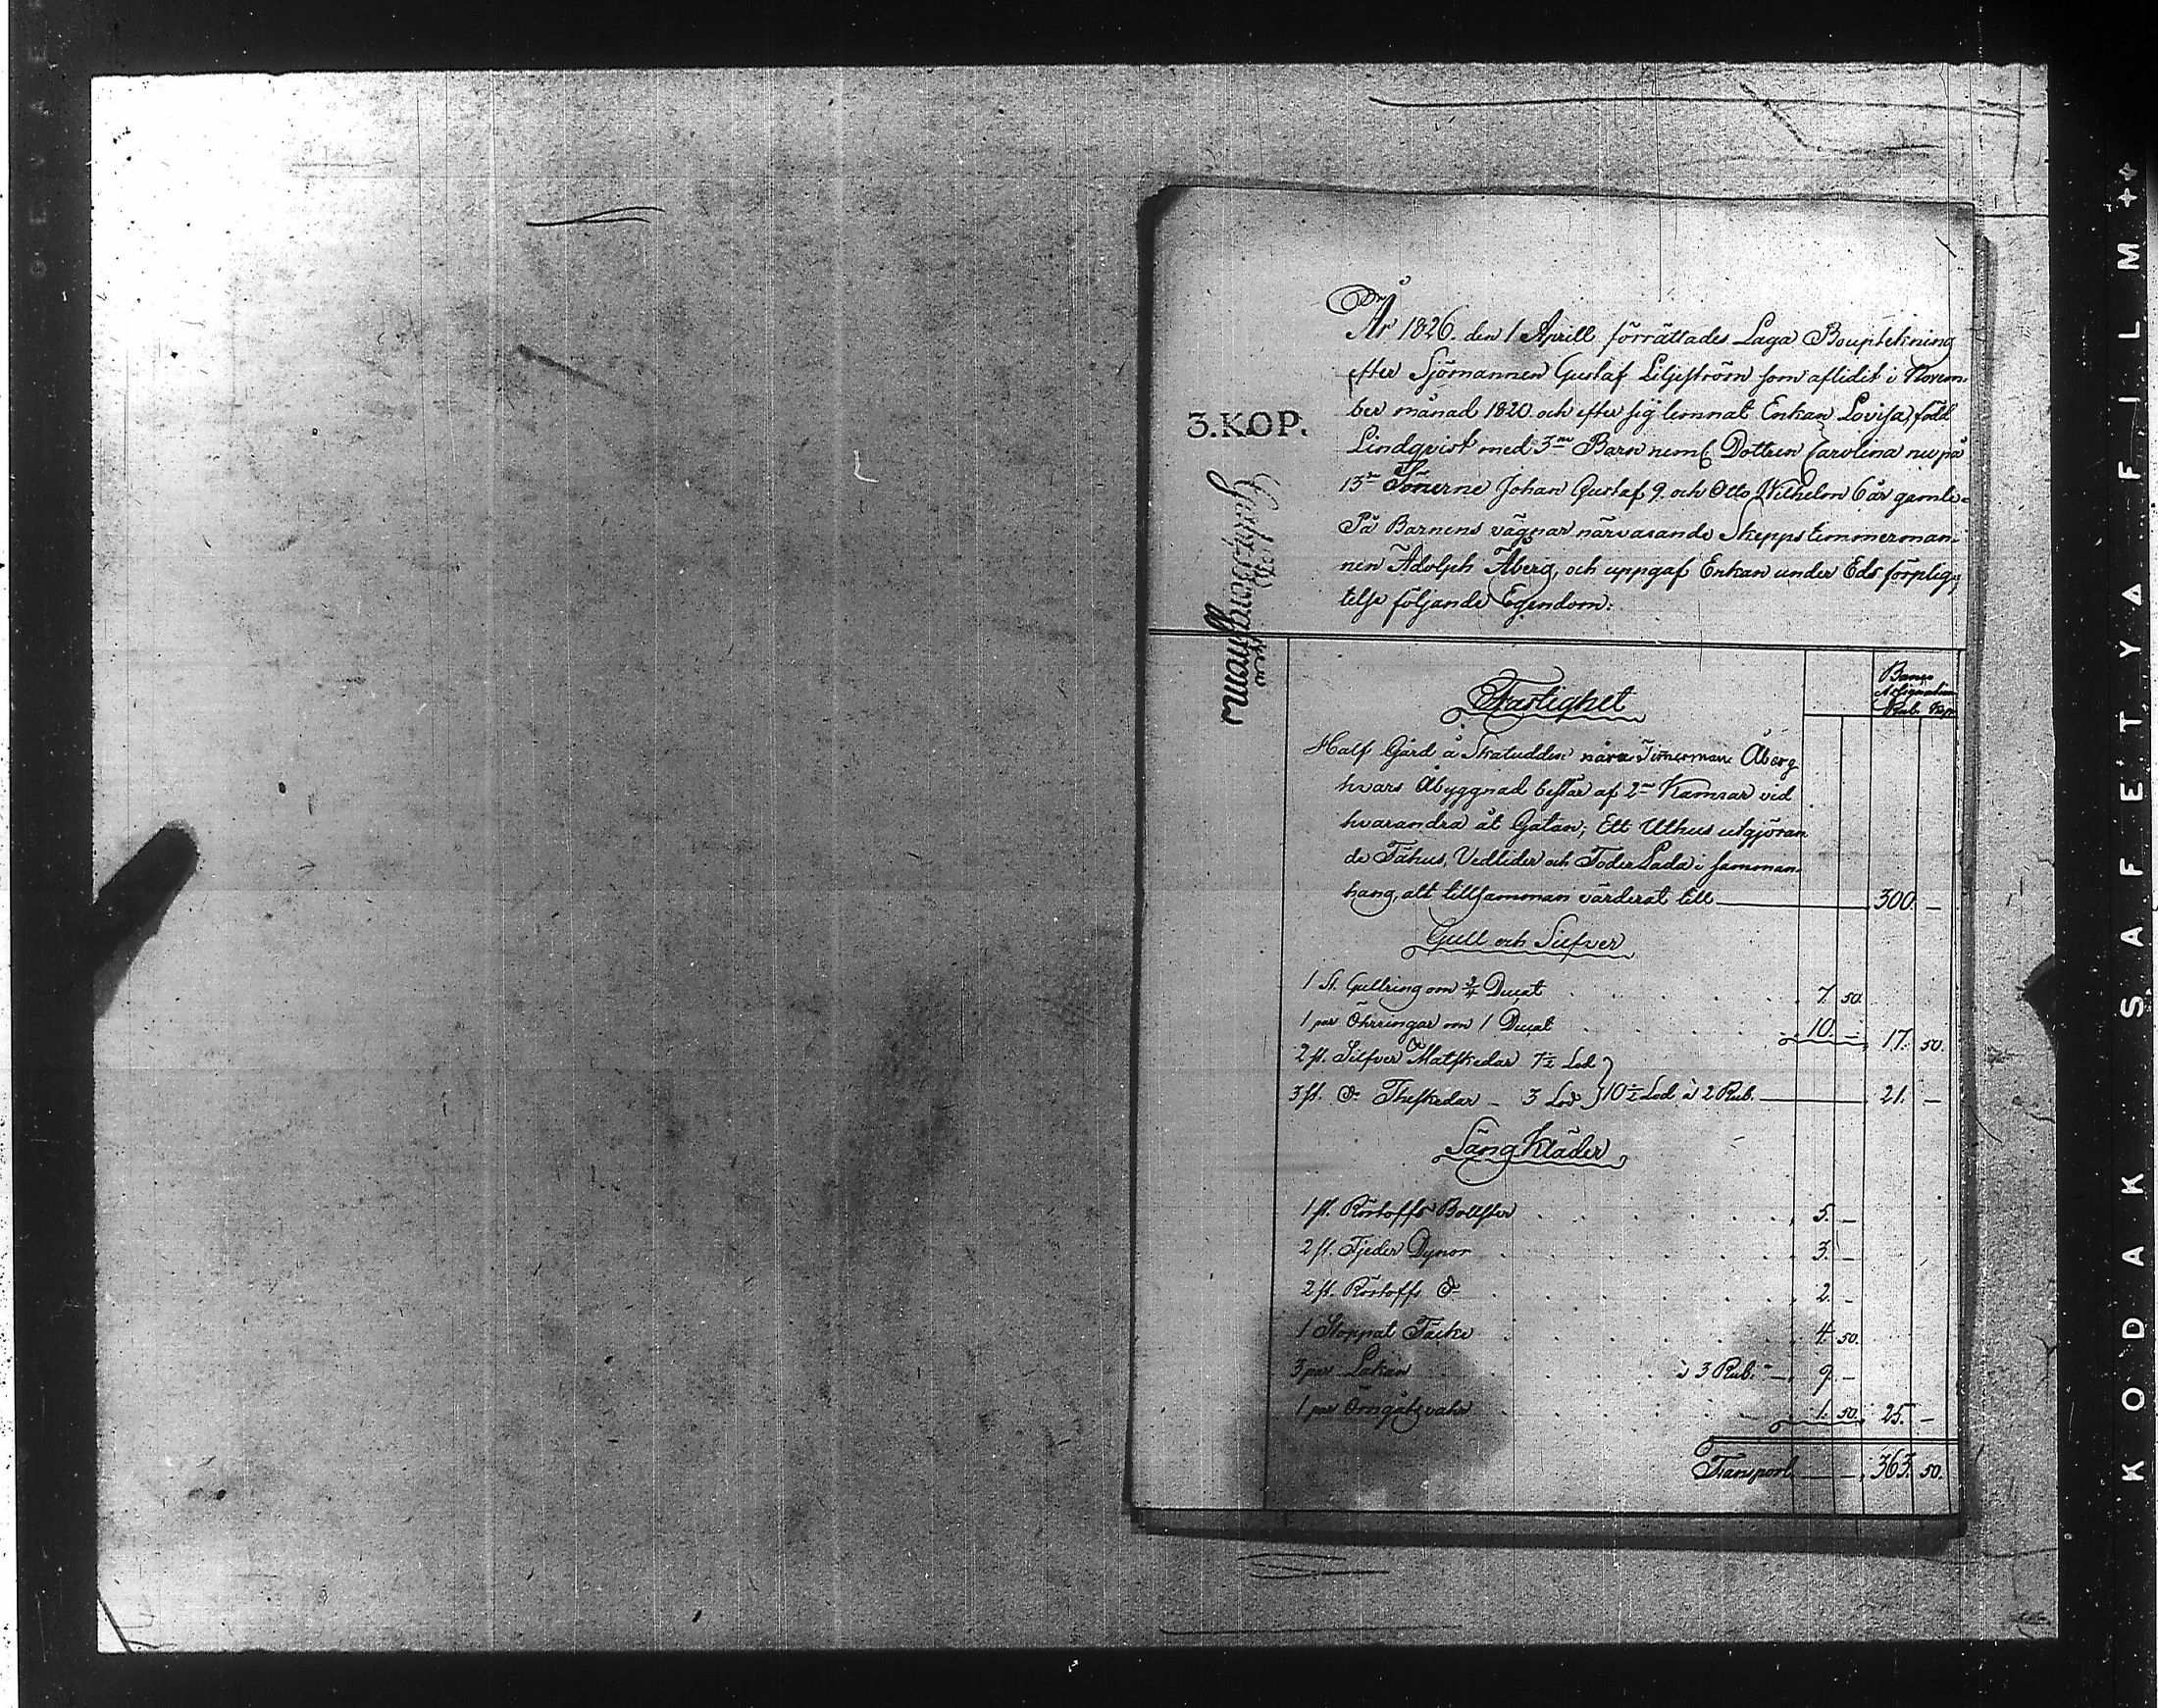 År 1826. den 1 Aprill förrättades Laga Bouptekning
efter Sjömannen Gustaf Liljeström som aflidit i Novem-
ber månad 1820 och efter sig lemnat Enkan Lovisa, född
Lindqvist med 3ne Barn neml Dottren Carolina nu på
13de Sönerne Johan Gustaf 9. och Otto Wilhelm 6 år gamle.
På Barnens vägnar närvarande Skeppstimmerman-
nen Adolph Åberg, och uppgaf Enkan under Eds förplig-
telse följande Egendom:
3.KOP.
Banco
Assignation
Rub. Kop.
Fastighet
Half Gård å Skatudden nära Timerman Åberg
hvars Åbyggnad består af 2ne Kamrar vid
hvarandra åt Gatan; Ett Uthus utgjöran
de Fähus, Vedlider och Foder Lada i samman-
hang, alt tillsamman värderat till 300. —
Gull och Silfver
1 st. Gullring om 3/4 Ducat 7. 50.
1 par Öhrringar om 1 Ducat 10. — 17. 50.
2 st. Silfver Matskedar 7 1/2 Lod
3 st. Do Theskedar - 3 Lod } 10 1/2 Lod à 2 Rub. 21. —
Säng Kläder
1 st. Böstoffs Bolster 5. —
2 st. Fjeder Dynor 3. —
2 st. Böstoffs Do 2. —
1 Stoppat Täcke 4. 50.
3 par Lakan à 3 Rub. 9 —
1 par Örngåttsvahr 1. 50. 25. —
Transport 363. 50.
KODAK SAFETY ▲ FILM